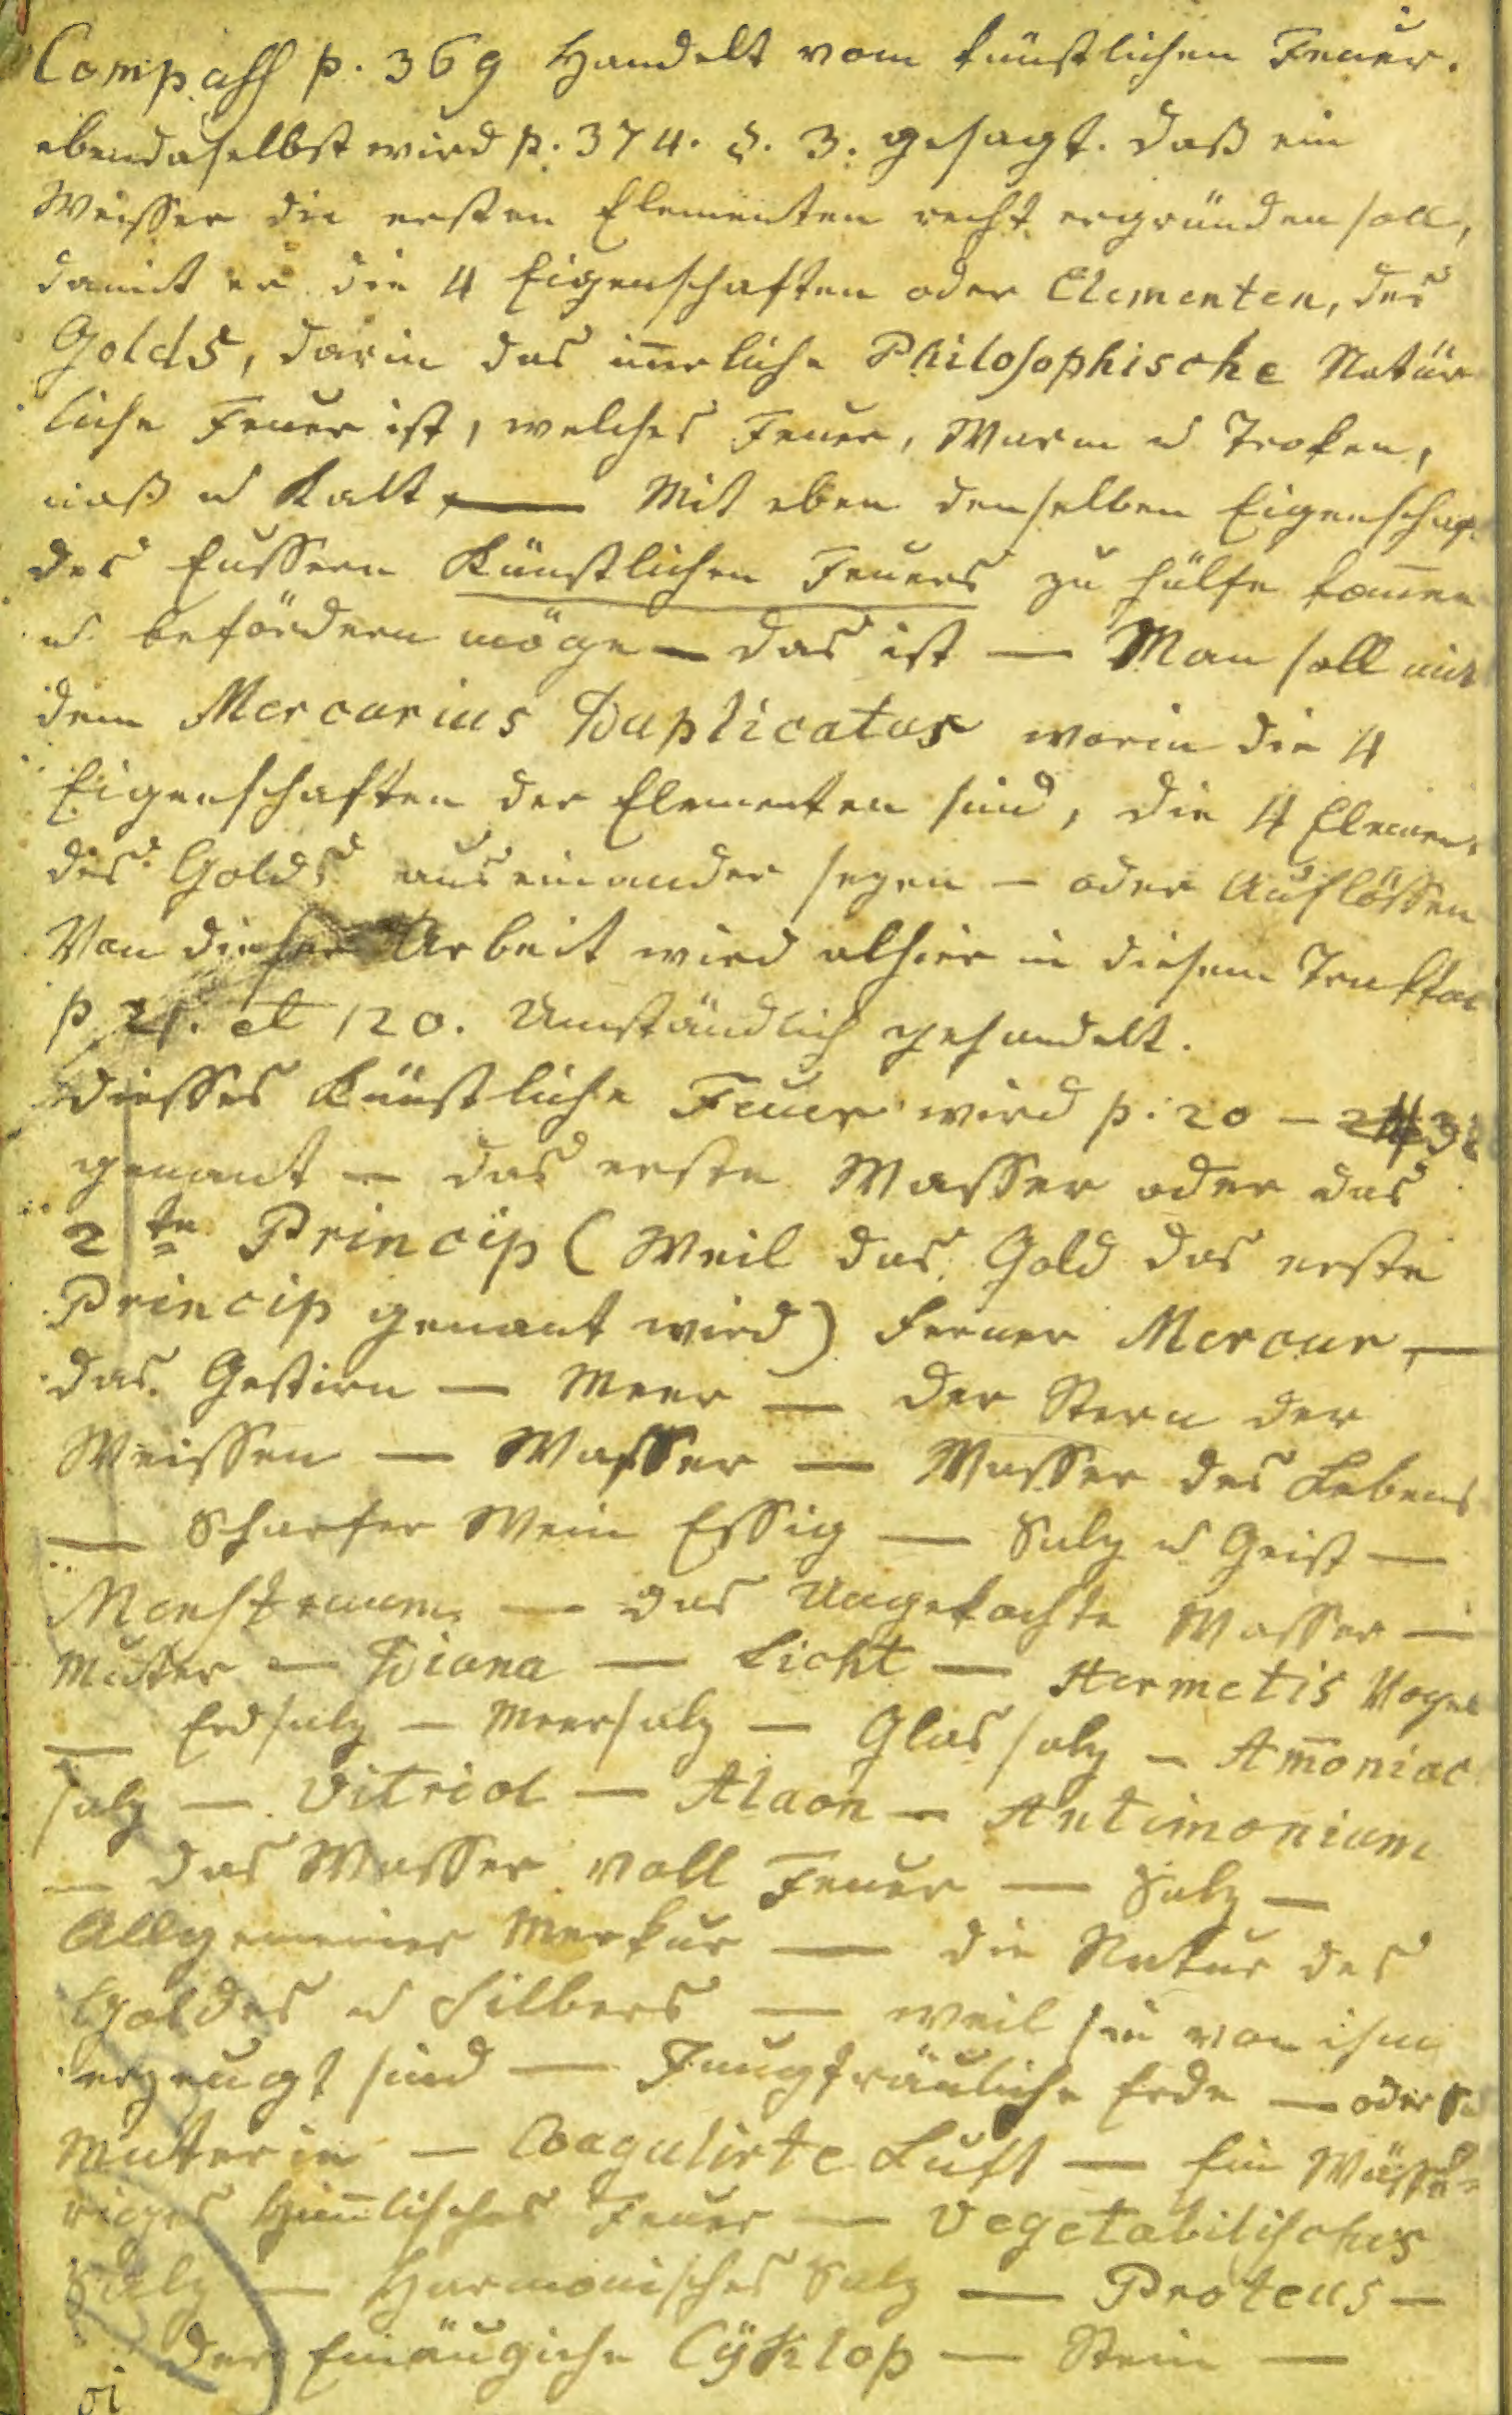 Compaß p. 369 Handelt vom künstlichen Feuer.
ebendaselbst wird p. 374. §. 3. gesagt. daß ein
Weisser die ersten Elementen recht ergründen soll,
damit er die 4 Eigenschaften oder Elementen, des
Golds, darin das iñerliche Philosophische Natür
liche Feuer ist, welches Feuer, Warm u Troken,
naß u Kalt, — Mit eben denselben Eigenschaf.
des Eussern Künstlichen Feuers zu hülfe kom̄en
u befördern möge — das ist — Man soll mit
dem Mercurius Duplicatus worin die 4
Eigenschaften der Elementen sind, die 4 Elemen.
des Golds auseinander sezen — oder Auflössen
Von dieser Arbeit wird alhier in diesem Traktat
p. 21. et 120. Umständlich gehandelt.
diesses Künstliche Feuer wird p. 20 —
genant — das erste Wasser oder das
2te Princip (Weil das Gold das erste
Princip genant wird) ferner Mercur, —
das Gestirn — Meer — der Stern der
Weissen — Wasser — Wasser des Lebens
— Scharfer Wein Essig — Salz u Geist —
Menstruum — das Ungekochte Wasser —
Mutter — Diana — Licht — Hermetis Vogel
— Erdsalz — Meersalz — Glassalz — Am̄oniac
salz — Vitriol — Alaon — Antimonium
— das Wasser voll Feuer — Salz —
Allgemeiner Merkur — die Natur des
Goldes u Silbers — weil sie von ihm
erzeugt sind — Jungfräuliche Erde — oder
Mutterin — Coagulirte Luft — Ein Wässe-
riges Him̄lisches Feuer — Vegetabilisches
Salz — Harmonisches Salz — Proteus —
der Einäugiche Cÿklop — Stein —